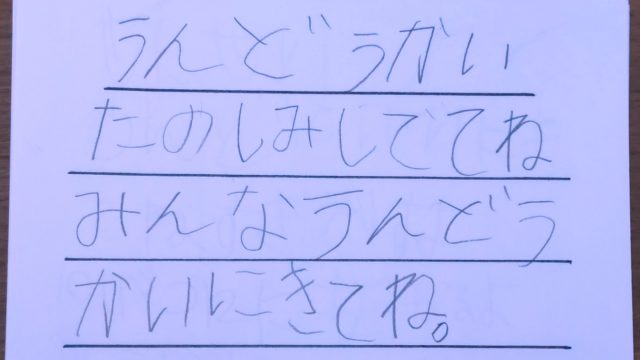 うんどうかい
たのしみしででてね
みんなうんどう
かいにきてね。